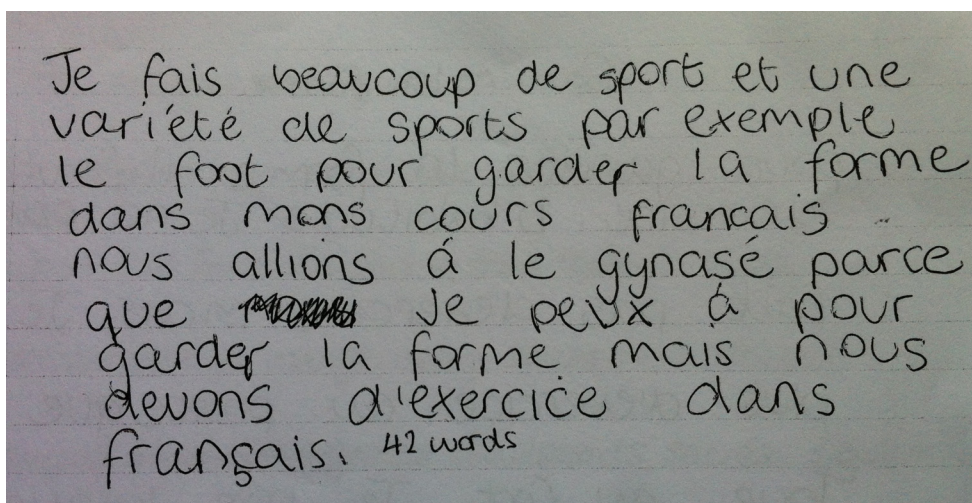 Je fais beaucoup de sport et une
variété de sports par exemple
le foot pour garder la forme
dans mons cours francais
nous allions á le gynasé parce
que je peux à pour
garder la forme mais nous
devons d'exercice dans
français. 42 words